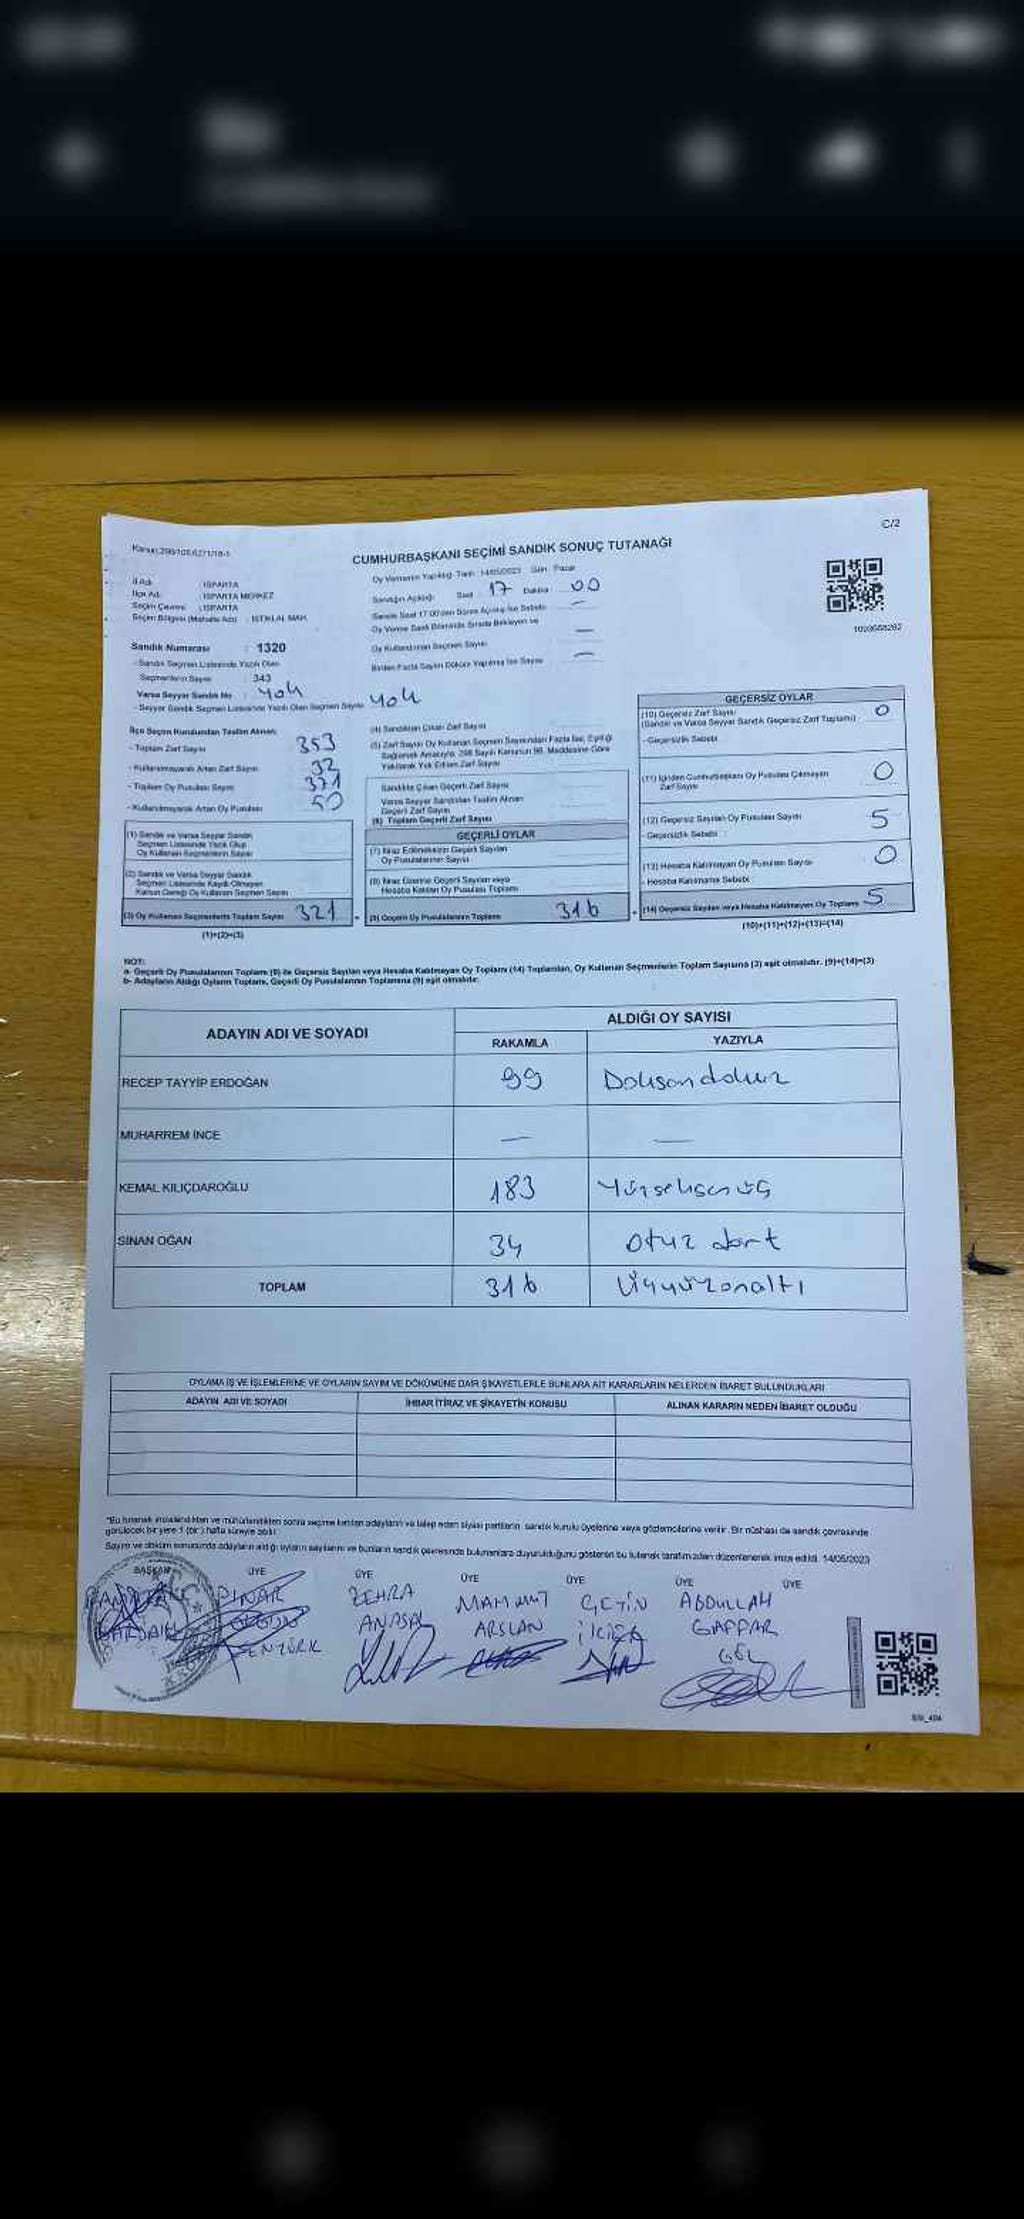 C/2
Kanun:298/105,6271/18-1
CUMHURBAŞKANI SEÇİMİ SANDIK SONUÇ TUTANAĞI
İl Adı : ISPARTA
İlçe Adı : ISPARTA MERKEZ
Seçim Çevresi : ISPARTA
Seçim Bölgesi (Mahalle Adı) : İSTİKLAL MAH.
Oy Vermenin Yapıldığı Tarih : 14/05/2023 Gün : Pazar
Sandığın Açıldığı Saat 17 Dakika 00
Sandık Saat 17.00'den Sonra Açılmış İse Sebebi —
Oy Verme Saati Bitiminde Sırada Bekleyen ve
Oy Kullandırılan Seçmen Sayısı —
Birden Fazla Sayım Döküm Yapılmış İse Sayısı —
Sandık Numarası : 1320
- Sandık Seçmen Listesinde Yazılı Olan
Seçmenlerin Sayısı : 343
Varsa Seyyar Sandık No : Yok
- Seyyar Sandık Seçmen Listesinde Yazılı Olan Seçmen Sayısı Yok
İlçe Seçim Kurulundan Teslim Alınan:
- Toplam Zarf Sayısı 353
- Kullanılmayarak Artan Zarf Sayısı 32
- Toplam Oy Pusulası Sayısı 371
- Kullanılmayarak Artan Oy Pusulası 50
(1) Sandık ve Varsa Seyyar Sandık
Seçmen Listesinde Yazılı Olup
Oy Kullanan Seçmenlerin Sayısı
(2) Sandık ve Varsa Seyyar Sandık
Seçmen Listesinde Kayıtlı Olmayan
Kanun Gereği Oy Kullanan Seçmen Sayısı
(3) Oy Kullanan Seçmenlerin Toplam Sayısı 321
(1)+(2)=(3)
(4) Sandıktan Çıkan Zarf Sayısı
(5) Zarf Sayısı Oy Kullanan Seçmen Sayısından Fazla İse, Eşitliği
Sağlamak Amacıyla, 298 Sayılı Kanunun 98. Maddesine Göre
Yakılarak Yok Edilen Zarf Sayısı
Sandıkta Çıkan Geçerli Zarf Sayısı
Varsa Seyyar Sandıktan Teslim Alınan
Geçerli Zarf Sayısı
(6) Toplam Geçerli Zarf Sayısı
GEÇERLİ OYLAR
(7) İtiraz Edilmeksizin Geçerli Sayılan
Oy Pusulalarının Sayısı
(8) İtiraz Üzerine Geçerli Sayılan veya
Hesaba Katılan Oy Pusulası Toplamı
(9) Geçerli Oy Pusulalarının Toplamı 316
GEÇERSİZ OYLAR
(10) Geçersiz Zarf Sayısı 0
(Sandık ve Varsa Seyyar Sandık Geçersiz Zarf Toplamı)
- Geçersizlik Sebebi
(11) İçinden Cumhurbaşkanı Oy Pusulası Çıkmayan
Zarf Sayısı 0
(12) Geçersiz Sayılan Oy Pusulası Sayısı 5
- Geçersizlik Sebebi :
(13) Hesaba Katılmayan Oy Pusulası Sayısı 0
- Hesaba Katılmama Sebebi
(14) Geçersiz Sayılan veya Hesaba Katılmayan Oy Toplamı 5
(10)+(11)+(12)+(13)=(14)
NOT:
a- Geçerli Oy Pusulalarının Toplamı (9) ile Geçersiz Sayılan veya Hesaba Katılmayan Oy Toplamı (14) Toplamları, Oy Kullanan Seçmenlerin Toplam Sayısına (3) eşit olmalıdır. (9)+(14)=(3)
b- Adayların Aldığı Oyların Toplamı, Geçerli Oy Pusulalarının Toplamına (9) eşit olmalıdır.
ADAYIN ADI VE SOYADI
ALDIĞI OY SAYISI
RAKAMLA YAZIYLA
RECEP TAYYİP ERDOĞAN 99 Doksandokuz
MUHARREM İNCE — —
KEMAL KILIÇDAROĞLU 183 Yüzseksenüç
SİNAN OĞAN 34 otuz dört
TOPLAM 316 Üçyüzonaltı
OYLAMA İŞ VE İŞLEMLERİNE VE OYLARIN SAYIM VE DÖKÜMÜNE DAİR ŞİKAYETLERLE BUNLARA AİT KARARLARIN NELERDEN İBARET BULUNDUKLARI
ADAYIN ADI VE SOYADI İHBAR İTİRAZ VE ŞİKAYETİN KONUSU ALINAN KARARIN NEDEN İBARET OLDUĞU
*Bu tutanak imzalandıktan ve mühürlendikten sonra seçime katılan adayların ve talep eden siyasi partilerin sandık kurulu üyelerine veya gözlemcilerine verilir. Bir nüshası da sandık çevresinde
görülecek bir yere 1 (bir) hafta süreyle asılır.
Sayım ve döküm sonucunda adayların aldığı oyların sayılarını ve bunların sandık çevresinde bulunanlara duyurulduğunu gösteren bu tutanak tarafımızdan düzenlenerek imza edildi. 14/05/2023
BAŞKAN ÜYE ÜYE ÜYE ÜYE ÜYE ÜYE
PINAR ZEHRA MAHMUT ÇETİN ABDULLAH
ANASAL ARSLAN GAFFAR
ŞENTÜRK GÜL